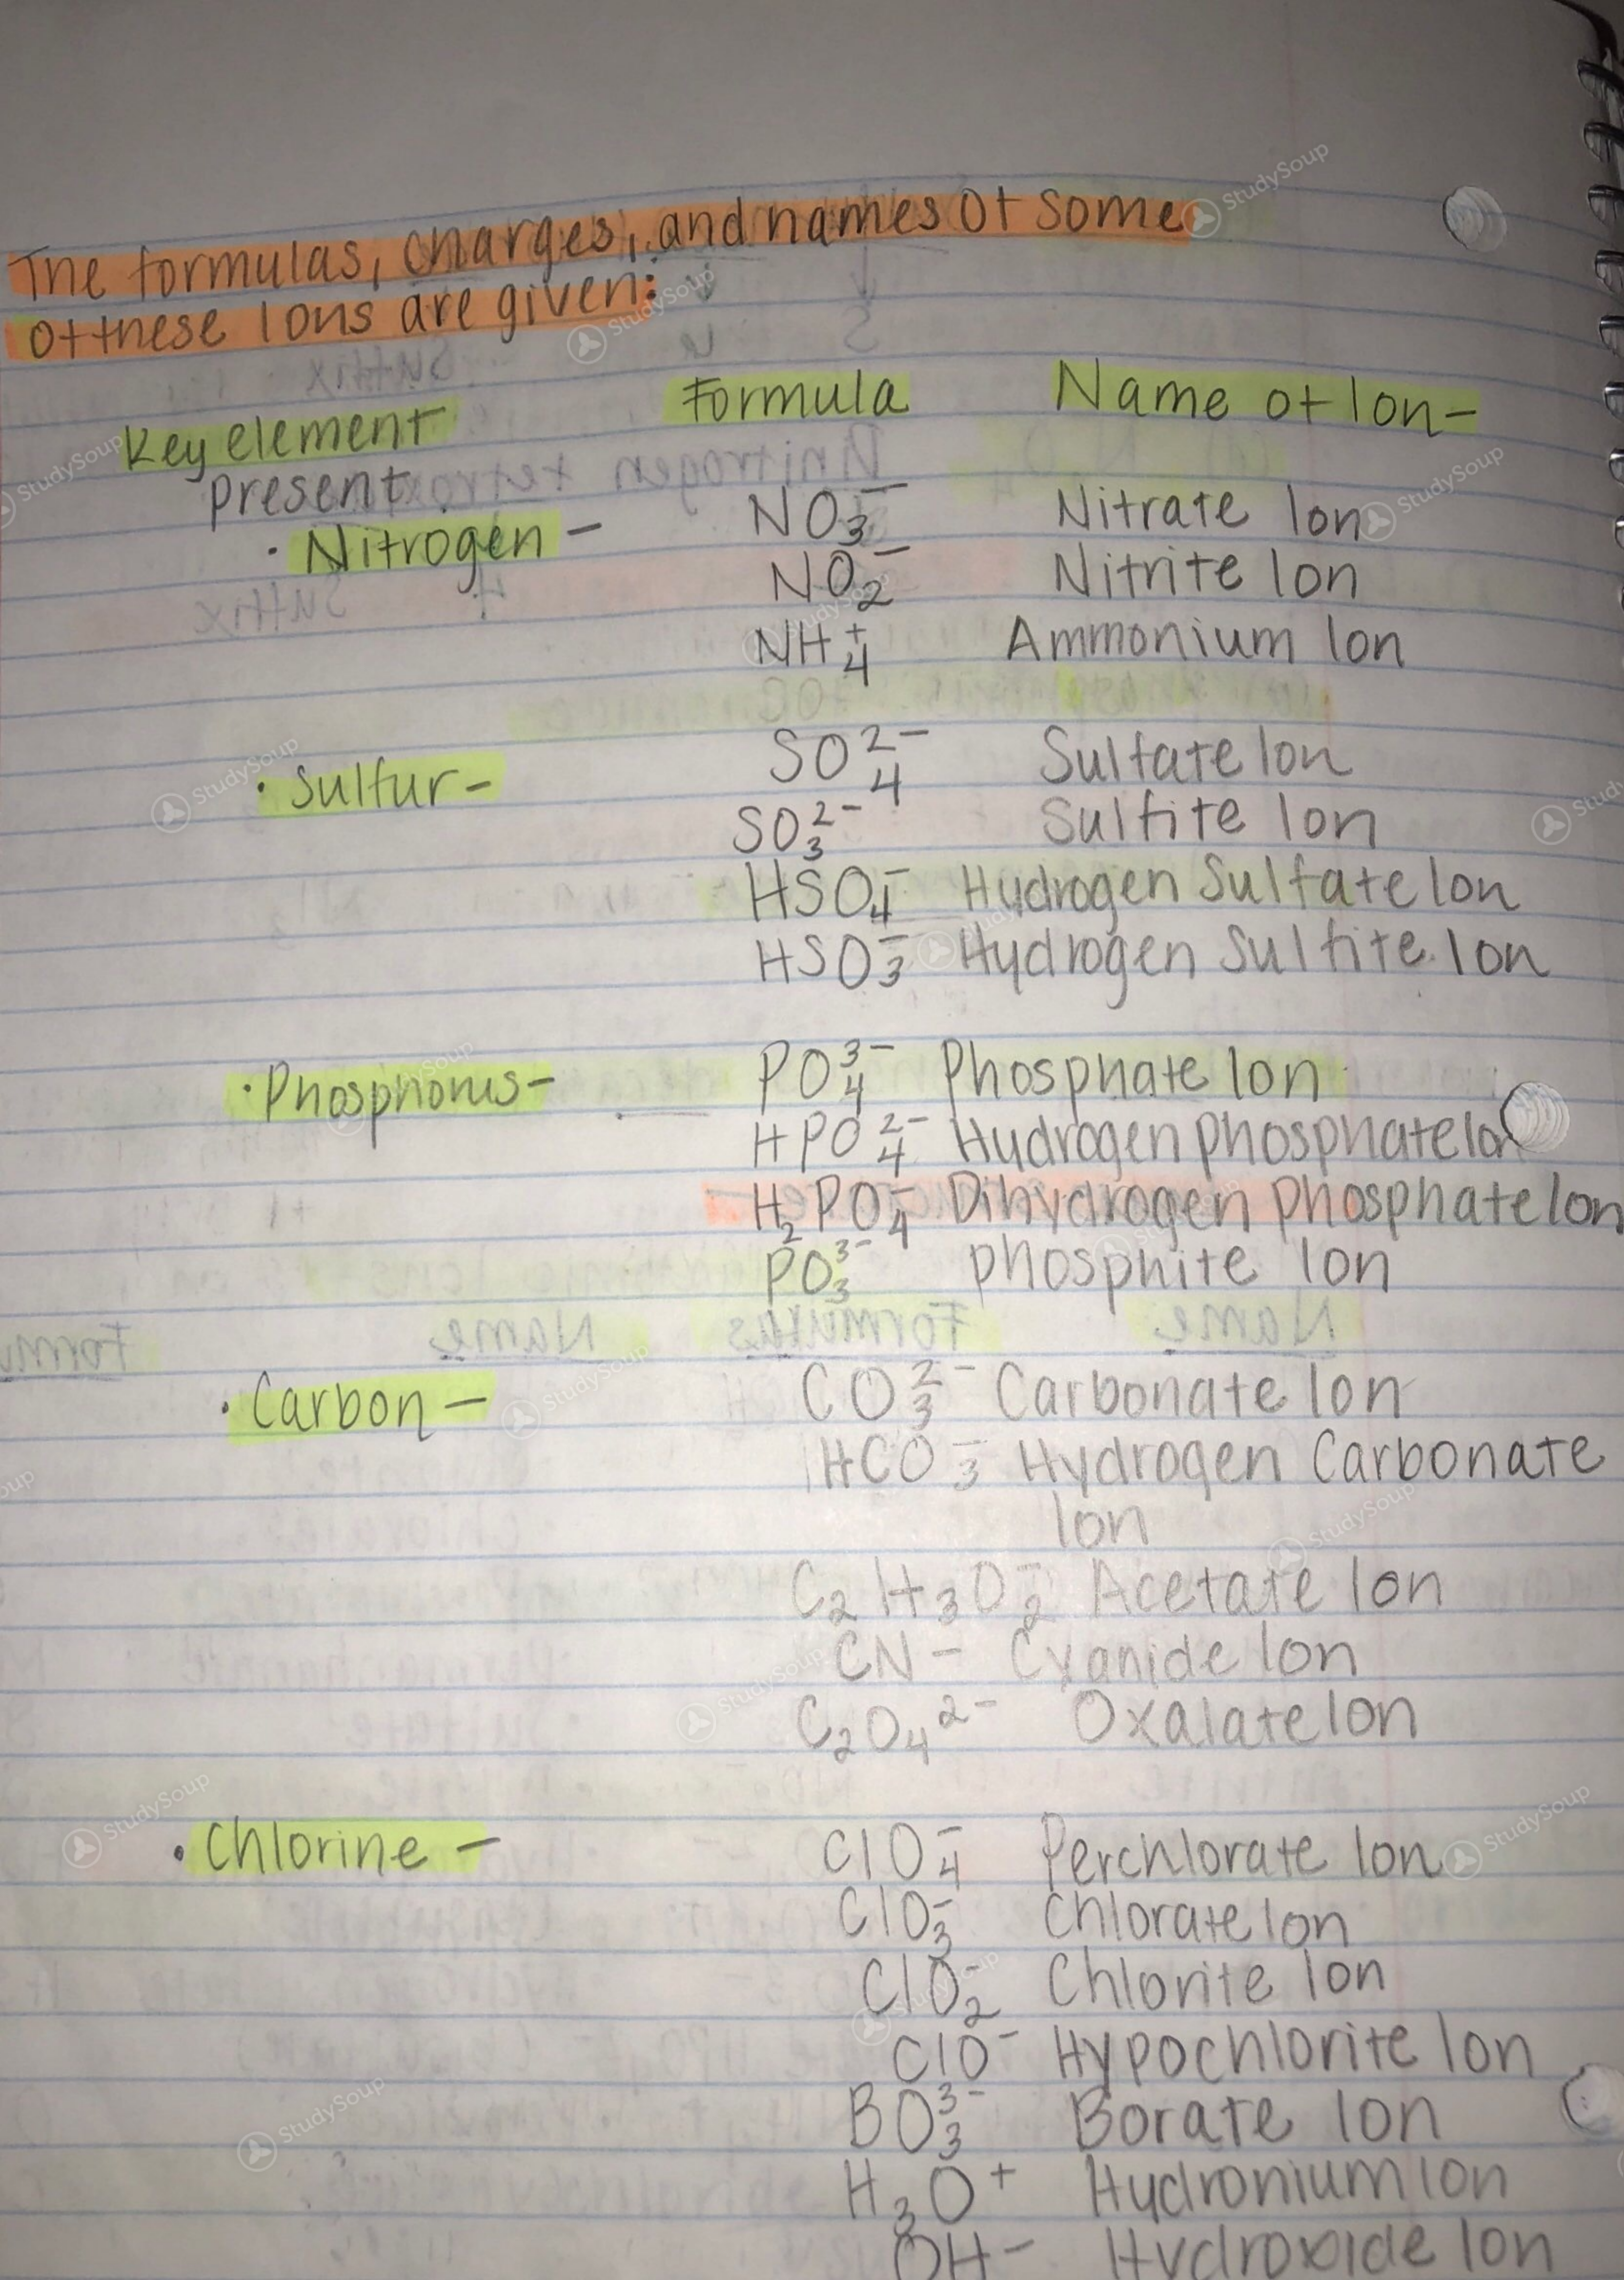 The formulas, charges, and names of some
of these Ions are given:
Key element present Formula Name of Ion-
• Nitrogen - NO₃⁻ Nitrate Ion
NO₂⁻ Nitrite Ion
NH₄⁺ Ammonium Ion
• Sulfur- SO₄²⁻ Sulfate Ion
SO₃²⁻ Sulfite Ion
HSO₄⁻ Hydrogen Sulfate Ion
HSO₃⁻ Hydrogen Sulfite Ion
• Phosphorus- PO₄³⁻ Phosphate Ion
HPO₄²⁻ Hydrogen phosphate Ion
H₂PO₄⁻ Dihydrogen phosphate Ion
PO₃³⁻ phosphite Ion
• Carbon - CO₃²⁻ Carbonate Ion
HCO₃⁻ Hydrogen Carbonate
Ion
C₂H₃O₂⁻ Acetate Ion
CN⁻ Cyanide Ion
C₂O₄²⁻ Oxalate Ion
• Chlorine - ClO₄⁻ Perchlorate Ion
ClO₃⁻ Chlorate Ion
ClO₂⁻ Chlorite Ion
ClO⁻ Hypochlorite Ion
BO₃³⁻ Borate Ion
H₃O⁺ Hydronium Ion
OH⁻ Hydroxide Ion
StudySoup